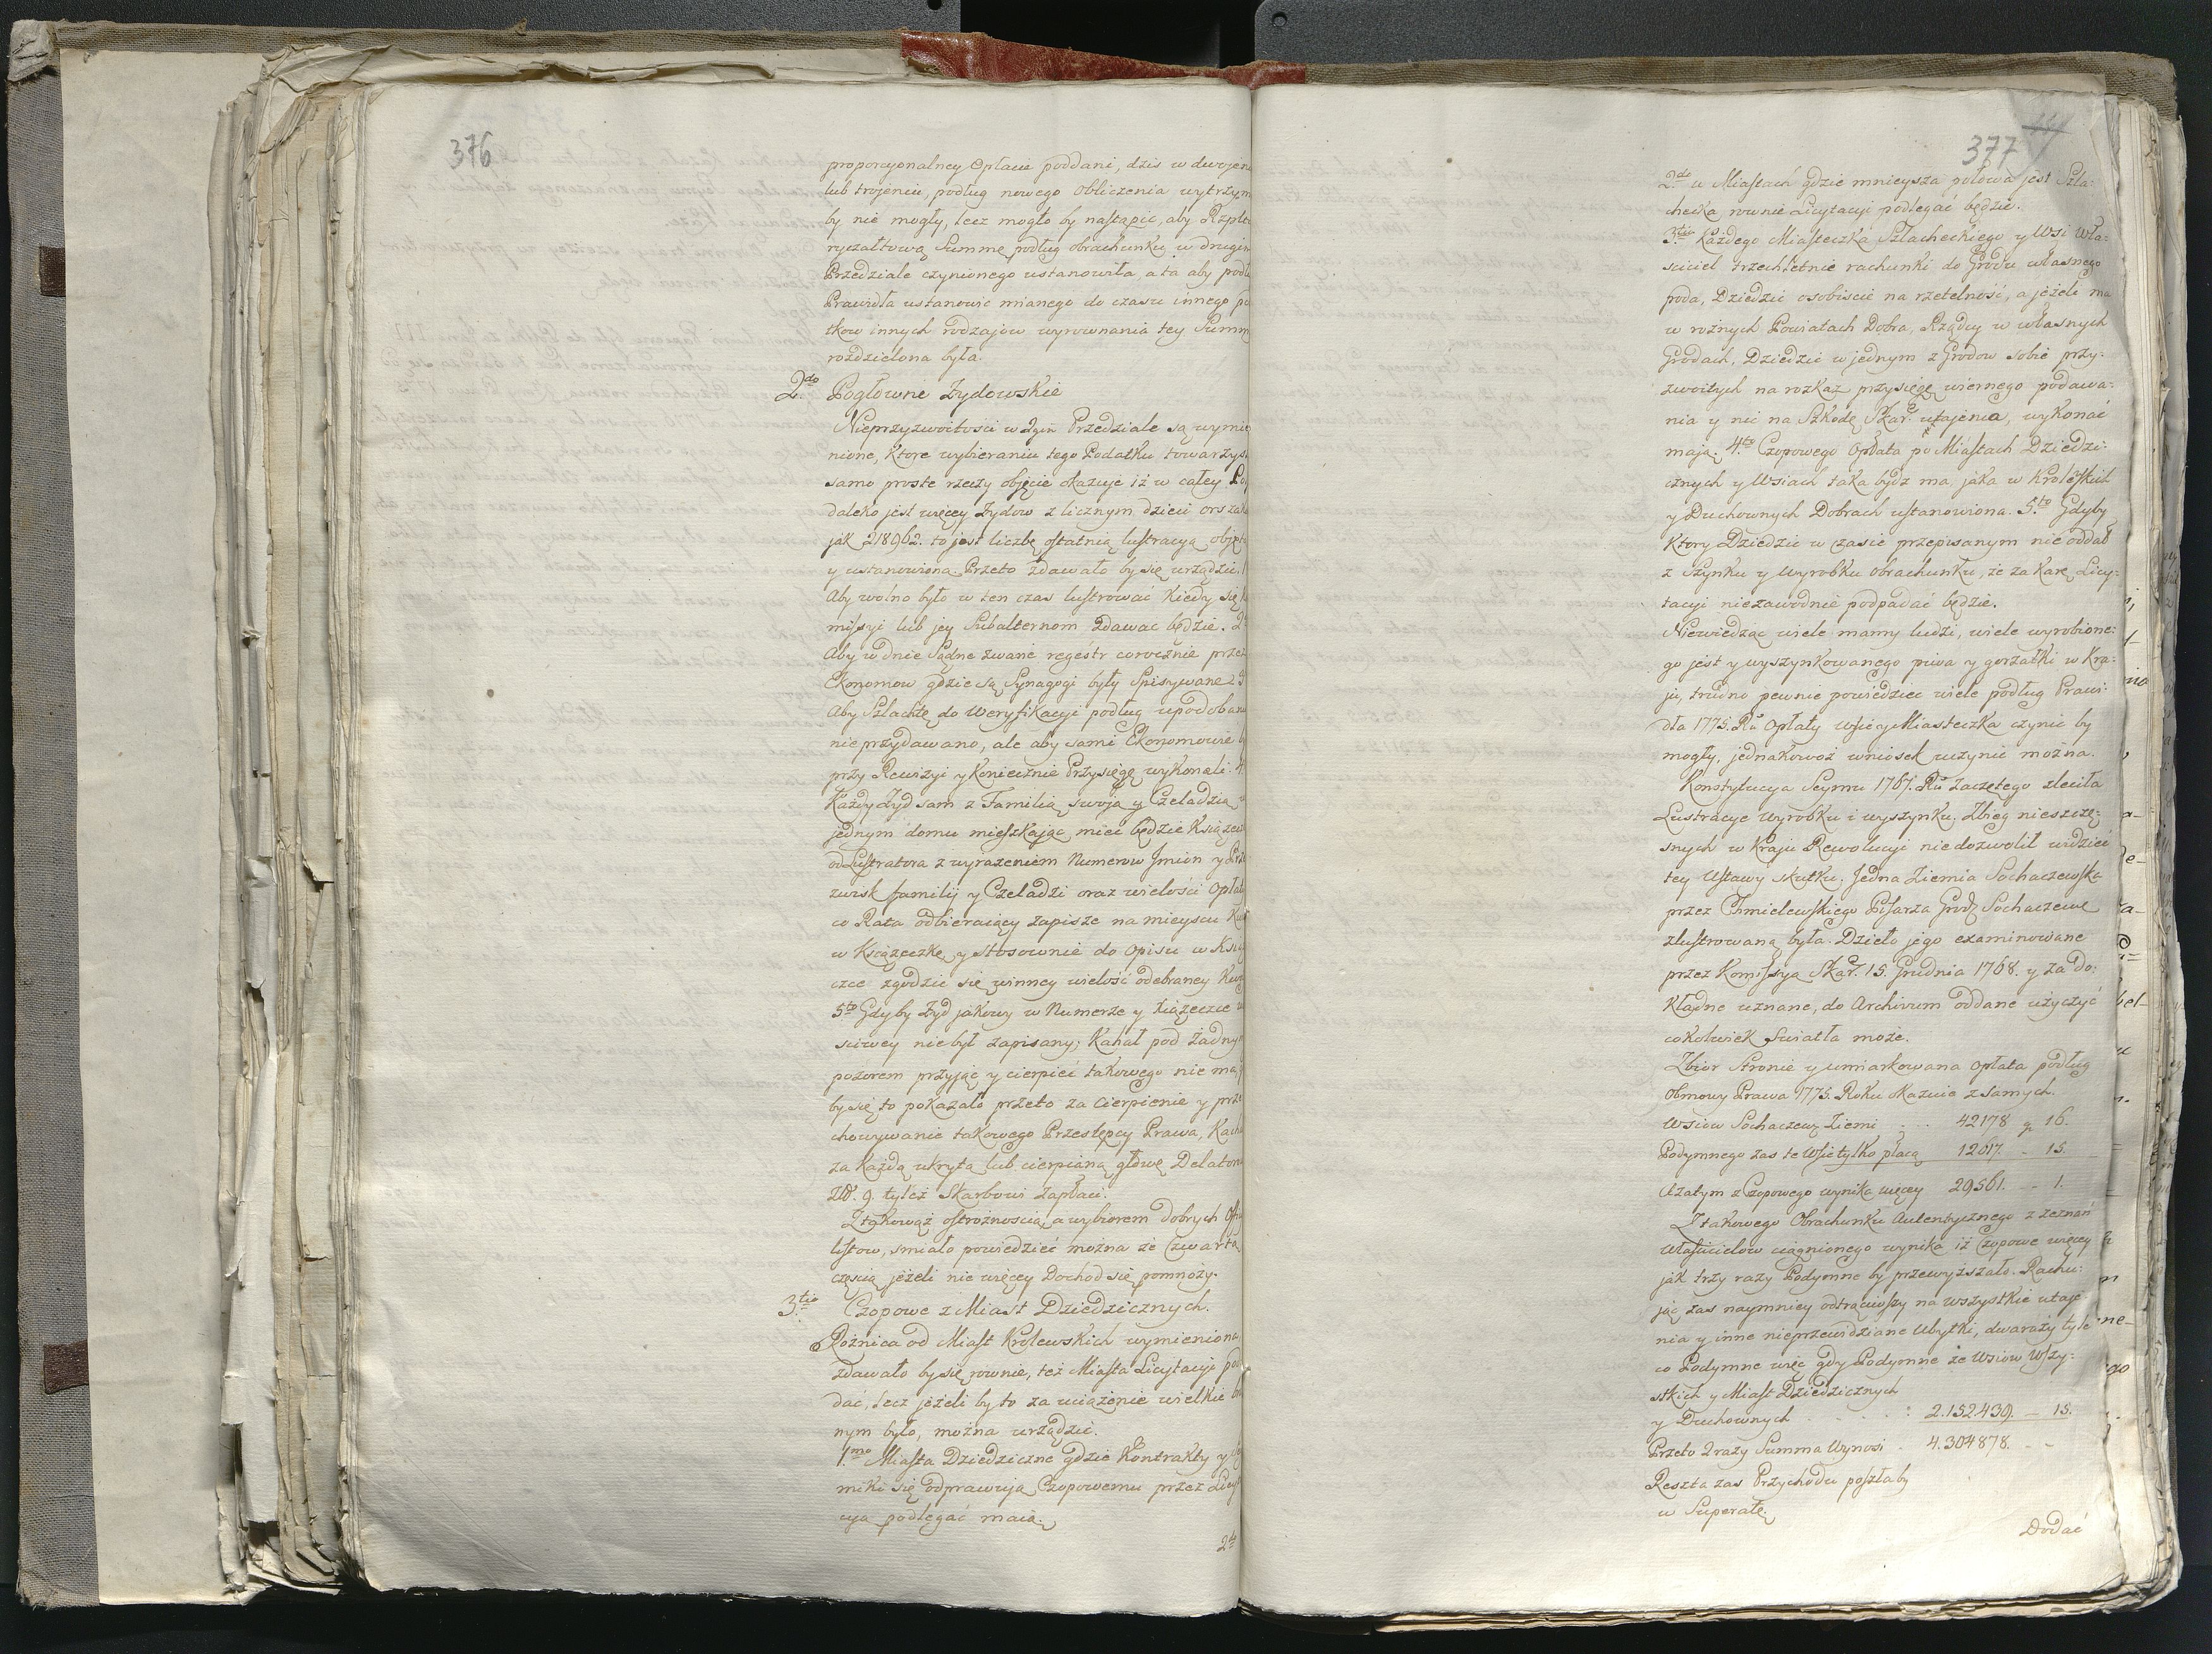 376
proporcyonalney Opłacie poddani, dzis w dwojen
lub trojeniu, podług nowego obliczenia wytrzym
by nie mogły, lecz mogło by nastąpic, aby Rzplta
ryczałtową Summę podług obrachunku w drugim
Przedziale czynionego ustanowiła, a ta aby podłu
Prawidła ustanowic mianego do czasu innego po
tkow innych rodzajow wyrownania tey Summ
rozdzielona była.
2do Pogłowne Żydowskie
Nieprzyzwoitosci w 2gim Przedziale są wymie
nione, ktore wybieraniu tego Podatku towarzys
samo proste rzeczy objęcie okazuje iż w całey Po
daleko jest więcey Żydow z licznym dzieci orszak
jak 218962. to jest liczbę ostatnią lustracyą objęt
y ustanowiona. Przeto zdawało by się urządzic. 1
Aby wolno było w ten czas lustrować kiedy się
missyi lub jey Subalternom zdawac będzie. 2
Aby w dnie Sądne zwane regestr corocznie przez
Ekonomow gdzie są Synagogi były Spisywane. 3
Aby Szlachtę do Weryfikacyi podług upodobani
nieprzydawano, ale aby sami Ekonomowie
przy Rewizyi y koniecznie Przysięgę wykonali. 4
Każdy Żyd sam z Familią swoją y Czeladzią
jednym domu mieszkając, mieć będzie Książecz
od Lustratora z wyrażeniem Numerow Jmion y Prze
zwisk familij y Czeladzi oraz wielości Opłaty
co Rata odbieraiący zapisze na mieyscu Kw
w Książeczkę, y stosownie do Opisu w Ksią
czce zgodzic się winney wielość odebraney Kwo
5to Gdyby Żyd jakowy w Numerze y Książeczce
sciwey niebył zapisany; Kahał pod żadny
pozorem przyjąć y cierpieć takowego nie ma,
by się to pokazało przeto za Cierpienie y prze
chowywanie takowego Przestępcy Prawa, Kaha
za każdą ukrytą lub cierpianą głowę Delator
zł. 9. tyleż Skarbowi zapłaci.
Z takowąż ostrożnoscią, a wybiorem dobrych Offi
listow, smiało powiedzieć można że Czwartą
częscią jeżeli nie więcey Dochod się pomnoży.
3tio Czopowe z Miast Dziedzicznych.
Rożnica od Miast Krolewskich wymieniona
zdawało by się rownie, też Miasta Licytacyi pod
dać, lecz jeżeli by to za uciążenie wielkie
nym było, można urządzić.
1mo Miasta Dziedziczne gdzie Kontrakty y
miki się odprawują Czopowemu przez Licy
cyą podlegać maią.
2do
377
2do w Miastach gdzie mnieysza połowa jest Szla:
checka, rownie Licytacyi podlegać będzie.
3tio Każdego Miasteczka Szlacheckiego y Wsi Wła:
sciciel trzechletnie rachunki do Grodu własnego
poda, Dziedzic osobiscie na rzetelność, a jeżeli ma
w rożnych Powiatach Dobra, Rządcy w własnych
Grodach, Dziedzic w jednym z Grodow sobie przy:
zwoitych na rozkaz przysięgę wiernego podawa:
nia y nic na Szkodę Skar: utajenia, wykonać
mają. 4to Czopowego Opłata po Miastach Dziedzi:
cznych y Wsiach taka bydz ma jaka w Krolewskich
y Duchownych Dobrach ustanowiona. 5to Gdyby
ktory Dziedzic w czasie przepisanym nie oddał
z Szynku y Wyrobku Obrachunku, że za karę Licy:
tacyi niezawodnie podpadać będzie.
Niewiedząc wiele mamy ludzi, wiele wyrobione:
go jest y wyszynkowanego piwa y gorzałki w Kra:
ju, trudno pewnie powiedzieć wiele podług Prawi:
dła 1775. Ru Opłaty Wsie y Miasteczka czynic by
mogły, jednakowoż wniosek uczynic można.
Konstytucya Seymu 1767. Ru Zaczętego zleciła
Lustracye Wyrobku i wyszynku. Zbieg nieszczę:
snych w Kraju Rewolucyi nie dozwolił widzieć
tey Ustawy skutku. Jedna Ziemia Sochaczewska
przez Chmielewskiego Pisarza Grodz Sochaczew
zlustrowaną była. Dzieło jego examinowane
przez Komissyą Skar. 15. Grudnia 1768. y za do:
kładne uznane, do Archivum oddane użyczyć
cokolwiek Swiatła może.
Zbior Stronie y umiarkowana Opłata podług
Obmowy Prawa 1775. Roku okazuie z samych.
Wsiow Sochaczew Ziemi . . . 42178 gr 16.
Podymnego zas te Wsie tylko płacą 12617. - 15.
Azatym z Czopowego wynika więcey 29561. - 1.
Z takowego Obrachunku Autentycznego z zeznań
Właścicielow ciągnionego wynika iż Czopowe więcey
jak trzy razy Podymne by przewyższało. Rachu:
jąc zas naymniey odtrąciwszy na wszystkie utaje
nia y inne nieprzewidziane Ubytki, dwa razy tyle
co Podymne więc gdy Podymne ze Wsiow Wszy:
stkich y Miast Dziedzicznych
y Duchownych . . . : 2.152.439. - 15.
Przeto 2 razy Summa Wynosi . 4.304878. - -
Reszta zas Przychodu poszłaby
w Superatę.
Dodać